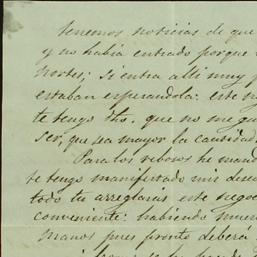 tenemos noticias de que
y no habia entrado porque
nortes; Si entra alli muy
estaban esperandola: este
te tengo dho. que no me gu
ser, que sea mayor la cantidad
Para los rebosos he mand
te tengo manifestado mis dese
todo tu arreglarás este nego
conveniente: habiendo
manos pues pronto deberá